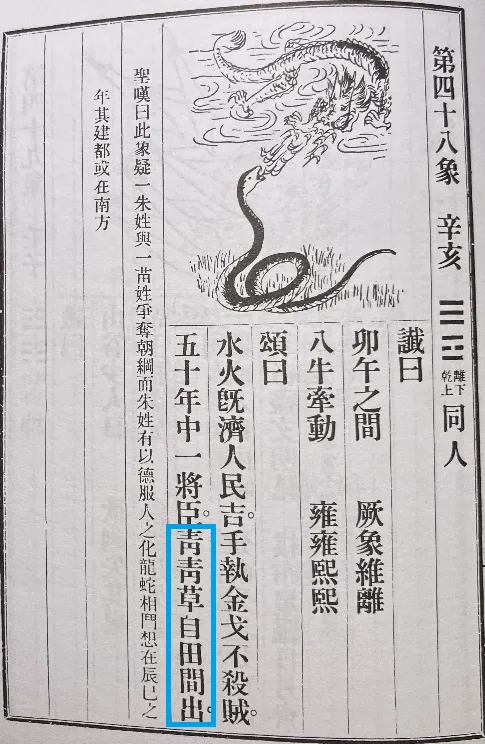 第四十八象 辛亥 ䷌ 離下乾上 同人
讖曰
卯午之間 厥象維離
八牛牽動 雍雍熙熙
頌曰
水火旣濟人民吉。手執金戈不殺賊。
五十年中一將臣。靑靑草自田間出。
聖嘆曰此象疑一朱姓與一苗姓爭奪朝綱而朱姓有以德服人之化龍蛇相鬥想在辰巳之
年其建都或在南方